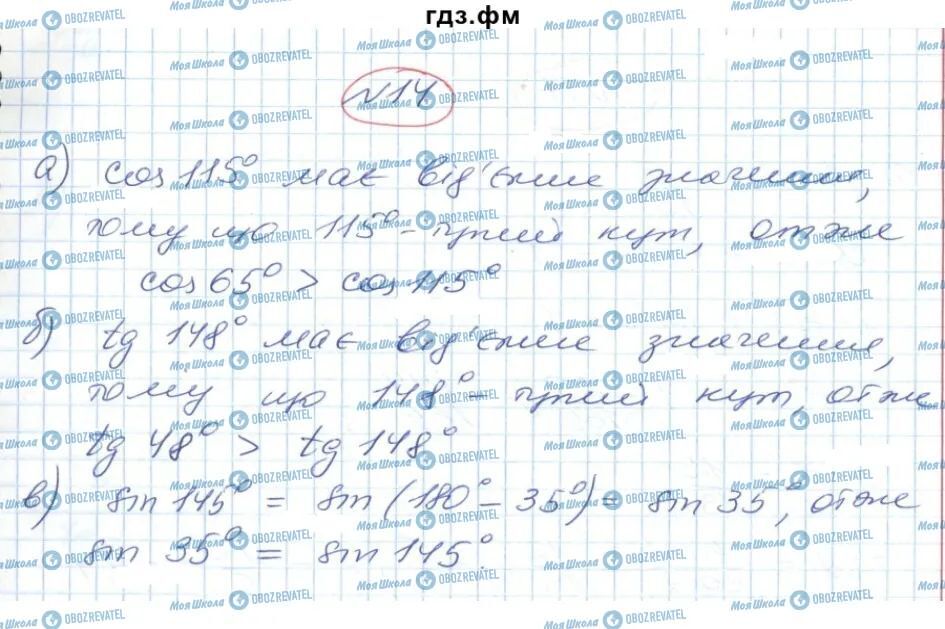 гдз.фм
№14
а) cos 115° має від'ємне значення,
тому що 115° - тупий кут, отже
cos 65° > cos 115°
б) tg 148° має від'ємне значення,
тому що 148° - тупий кут, отже
tg 48° > tg 148°
в) sin 145° = sin (180° - 35°) = sin 35°, отже
sin 35° = sin 145°.
Моя Школа OBOZREVATEL